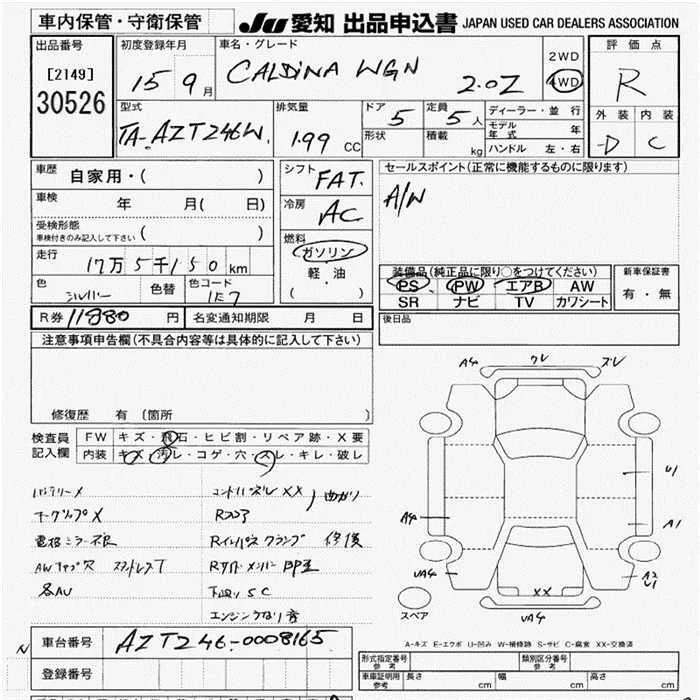 車内保管・守衛保管
JU 愛知 出品申込書 JAPAN USED CAR DEALERS ASSOCIATION
出品番号
[2149]
30526
初度登録年月
15 9月
車名・グレード
CALDINA WGN 2.0Z
2WD
4WD
評価点
R
外装 内装
D C
型式
TA-AZT246W.
排気量
1.99 CC
ドア 5
形状
定員 5人
積載 kg
ディーラー・並行
モデル年式 年
ハンドル 左・右
車歴
自家用・( )
車検 年 月( 日)
受検形態
車検付きのみ記入して下さい ( )
走行
17万5千150km
色 シルバー
色替
色コード 1E7
シフト FAT.
冷房 AC
燃料
ガソリン
軽・油
( )
セールスポイント(正常に機能するものに限ります)
A/W
装備品(純正品に限り○をつけてください)
PS PW エアB AW
SR ナビ TV カワシート
新車保証書
有・無
R券 11880円
名変通知期限 月 日
後日品
注意事項申告欄(不具合内容等は具体的に記入して下さい)
修復歴 有(箇所
検査員記入欄
FW キズ・飛石・ヒビ割・リペア跡・X要
内装 キズ・汚レ・コゲ・穴・スレ・キレ・破レ
バッテリーX
コーナーパネル XX 曲がり
Rフロア
電格ミラー不良
Rインサイドパネル クランプ 修復
Rサイドメンバー
下廻り SC
各AU
エンジン
A4 ワレ ズレ
U1
A4 A1
UA4 XX A2 U1
UA4
スペア
A-キズ E-エクボ U-凹み W-補修跡 S-サビ C-腐食 XX-交換済
N
車台番号 AZT246-0008165
登録番号
形式指定番号 参考
類別区分番号 参考
車庫証明用 参考 長さ cm 幅 cm 高さ cm